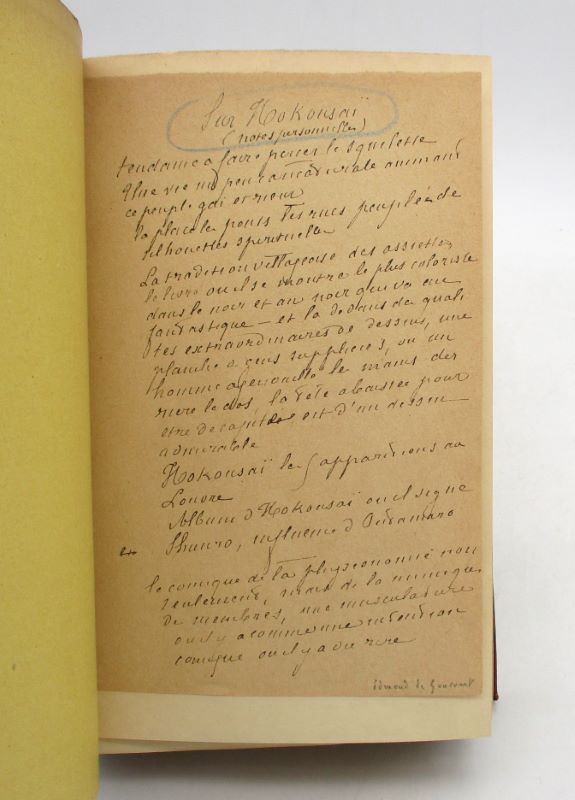 Sur Hokousaï
(notes personnelles)
tendance a faire percer le squelette
Une vie un peu caricaturale animant
ce peuple gai et rieur
la place le ponts les rues peuplée de
silhouettes spirituelles
La tradition villageoise des assiettes
le livre ou il se montre le plus coloriste
dans le noir et un noir qui va au
fantastique – et la dedans de quali
tés extraordinaires de dessins, une
planche a gens suppliciés, ou un
homme agenouillé le mains der
riere le dos, la tête abaissée pour
etre decapitée est d'un dessin
admirable
Hokousaï les apparitions au
Louvre
Album d'Hokousaï ou il signe
Shunro, influence d'Outamaro
le comique de la physionomie non
seulement, mais de la mimique
de membres, une musculature
ou il y a comme une intention
comique ou il y a du rire
Edmond de Goncourt